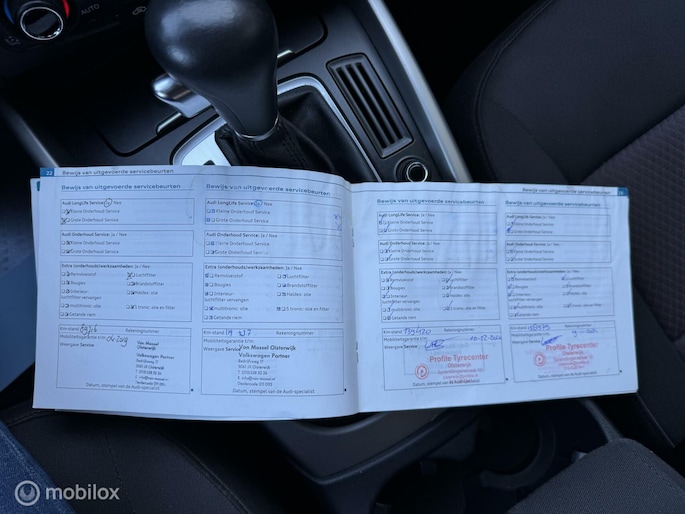 AUTO
22
Bewijs van uitgevoerde servicebeurten
Bewijs van uitgevoerde servicebeurten
Audi LongLife Service: Ja / Nee
Kleine Onderhoud Service
Grote Onderhoud Service
Audi Onderhoud Service: Ja / Nee
Kleine Onderhoud Service
Grote Onderhoud Service
Extra (onderhouds)werkzaamheden: Ja / Nee
Remvloeistof
Luchtfilter
Bougies
Brandstoffilter
Interieur-
luchtfilter vervangen
Haldex-olie
multitronic-olie
S tronic: olie en filter
Getande riem
Km-stand
Rekeningnummer
Mobiliteitsgarantie t/m:
Weergave Service:
Van Mossel Oisterwijk
Volkswagen Partner
Bedrijfsweg 17
Datum, stempel van de Audi-specialist
Bewijs van uitgevoerde servicebeurten
Audi LongLife Service: Ja / Nee
Kleine Onderhoud Service
Grote Onderhoud Service
Audi Onderhoud Service: Ja / Nee
Kleine Onderhoud Service
Grote Onderhoud Service
Extra (onderhouds)werkzaamheden: Ja / Nee
Remvloeistof
Luchtfilter
Bougies
Brandstoffilter
Interieur-
luchtfilter vervangen
Haldex-olie
multitronic-olie
S tronic: olie en filter
Getande riem
Km-stand
Rekeningnummer
Mobiliteitsgarantie t/m:
Weergave Service:
Van Mossel Oisterwijk
Volkswagen Partner
Bedrijfsweg 17
Datum, stempel van de Audi-specialist
Bewijs van uitgevoerde servicebeurten
Bewijs van uitgevoerde servicebeurten
Audi LongLife Service: Ja / Nee
Kleine Onderhoud Service
Grote Onderhoud Service
Audi Onderhoud Service: Ja / Nee
Kleine Onderhoud Service
Grote Onderhoud Service
Extra (onderhouds)werkzaamheden: Ja / Nee
Remvloeistof
Luchtfilter
Bougies
Brandstoffilter
Interieur-
luchtfilter vervangen
Haldex-olie
multitronic-olie
S tronic: olie en filter
Getande riem
Km-stand 135420
Rekeningnummer
Mobiliteitsgarantie t/m:
Weergave Service:
Profile Tyrecenter
Oisterwijk
Datum, stempel van de Audi-specialist
Bewijs van uitgevoerde servicebeurten
Audi LongLife Service: Ja / Nee
Kleine Onderhoud Service
Grote Onderhoud Service
Audi Onderhoud Service: Ja / Nee
Kleine Onderhoud Service
Grote Onderhoud Service
Extra (onderhouds)werkzaamheden: Ja / Nee
Remvloeistof
Luchtfilter
Bougies
Brandstoffilter
Interieur-
luchtfilter vervangen
Haldex-olie
multitronic-olie
S tronic: olie en filter
Getande riem
Km-stand
Rekeningnummer
Mobiliteitsgarantie t/m:
Weergave Service:
Profile Tyrecenter
Oisterwijk
Datum, stempel van de Audi-specialist
mobilox